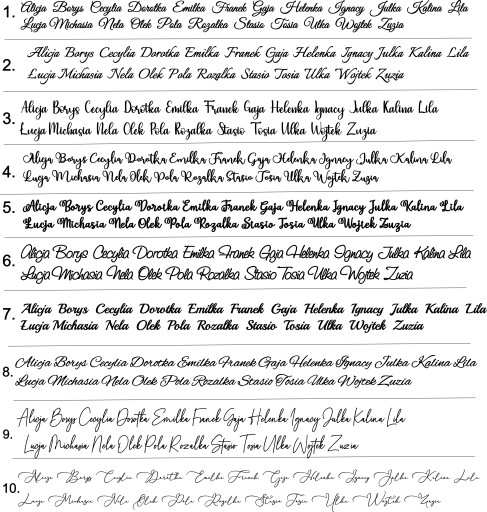 1. Alicja Borys Cecylia Dorotka Emilka Franek Gaja Helenka Ignacy Julka Kalina Lila
Łucja Michasia Nela Olek Pola Rozalka Stasio Tosia Ulka Wojtek Zuzia
2. Alicja Borys Cecylia Dorotka Emilka Franek Gaja Helenka Ignacy Julka Kalina Lila
Łucja Michasia Nela Olek Pola Rozalka Stasio Tosia Ulka Wojtek Zuzia
3. Alicja Borys Cecylia Dorotka Emilka Franek Gaja Helenka Ignacy Julka Kalina Lila
Łucja Michasia Nela Olek Pola Rozalka Stasio Tosia Ulka Wojtek Zuzia
4. Alicja Borys Cecylia Dorotka Emilka Franek Gaja Helenka Ignacy Julka Kalina Lila
Łucja Michasia Nela Olek Pola Rozalka Stasio Tosia Ulka Wojtek Zuzia
5. Alicja Borys Cecylia Dorotka Emilka Franek Gaja Helenka Ignacy Julka Kalina Lila
Łucja Michasia Nela Olek Pola Rozalka Stasio Tosia Ulka Wojtek Zuzia
6. Alicja Borys Cecylia Dorotka Emilka Franek Gaja Helenka Ignacy Julka Kalina Lila
Łucja Michasia Nela Olek Pola Rozalka Stasio Tosia Ulka Wojtek Zuzia
7. Alicja Borys Cecylia Dorotka Emilka Franek Gaja Helenka Ignacy Julka Kalina Lila
Łucja Michasia Nela Olek Pola Rozalka Stasio Tosia Ulka Wojtek Zuzia
8. Alicja Borys Cecylia Dorotka Emilka Franek Gaja Helenka Ignacy Julka Kalina Lila
Łucja Michasia Nela Olek Pola Rozalka Stasio Tosia Ulka Wojtek Zuzia
9. Alicja Borys Cecylia Dorotka Emilka Franek Gaja Helenka Ignacy Julka Kalina Lila
Łucja Michasia Nela Olek Pola Rozalka Stasio Tosia Ulka Wojtek Zuzia
10. Alicja Borys Cecylia Dorotka Emilka Franek Gaja Helenka Ignacy Julka Kalina Lila
Łucja Michasia Nela Olek Pola Rozalka Stasio Tosia Ulka Wojtek Zuzia